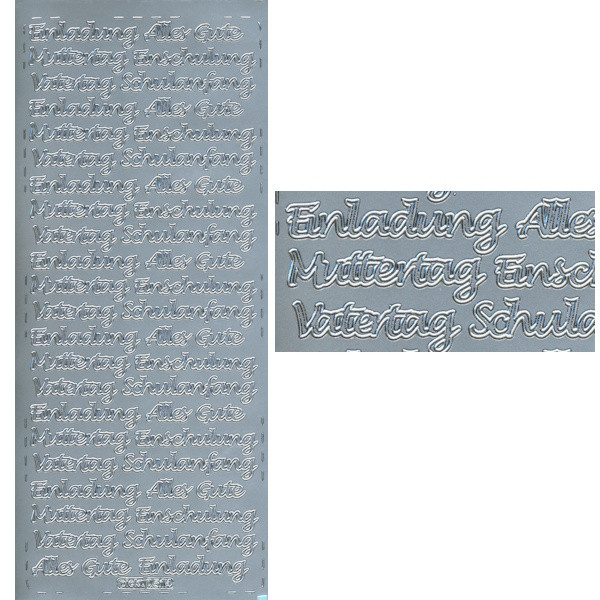 Einladung Alles Gute
Muttertag Einschulung
Vatertag Schulanfang
Einladung Alles Gute
Muttertag Einschulung
Vatertag Schulanfang
Einladung Alles Gute
Muttertag Einschulung
Vatertag Schulanfang
Einladung Alles Gute
Muttertag Einschulung
Vatertag Schulanfang
Einladung Alles Gute
Muttertag Einschulung
Vatertag Schulanfang
Einladung Alles Gute
Muttertag Einschulung
Vatertag Schulanfang
Einladung Alles Gute
Muttertag Einschulung
Vatertag Schulanfang
Alles Gute Einladung
Einladung Alles
Muttertag Einsch
Vatertag Schula